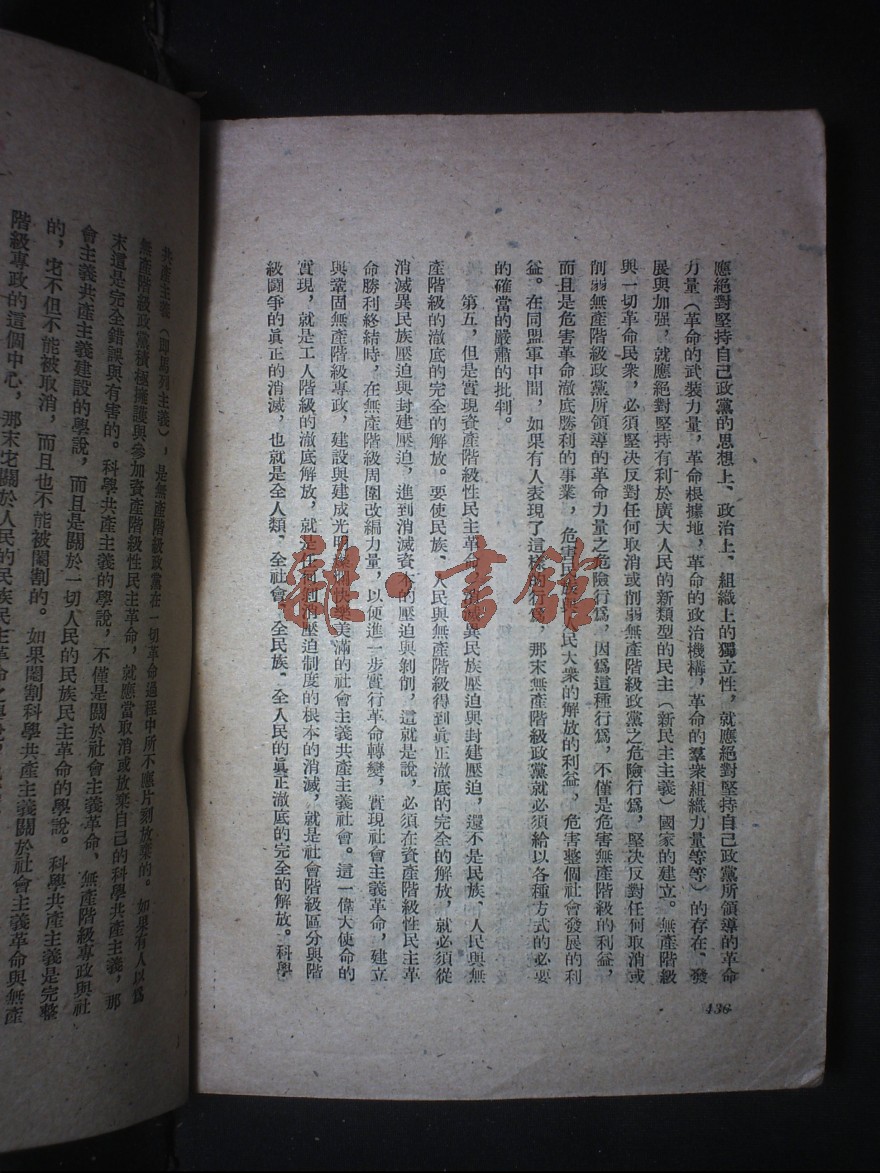 應絕對堅持自己政黨的思想上、政治上、組織上的獨立性，就應絕對堅持自己政黨所領導的革命
力量（革命的武裝力量，革命根據地，革命的政治機構，革命的羣衆組織力量等等）的存在、發
展與加强，就應絕對堅持有利於廣大人民的新類型的民主（新民主主義）國家的建立。無產階級
與一切革命民衆，必須堅决反對任何取消或削弱無產階級政黨之危險行爲，堅决反對任何取消或
削弱無產階級政黨所領導的革命力量之危險行爲，因爲這種行爲，不僅是危害無產階級的利益，
而且是危害革命澈底勝利的事業，危害民族與人民大衆的解放的利益，危害整個社會發展的利
益。在同盟軍中間，如果有人表現了這樣的行爲，那末無產階級政黨就必須給以各種方式的必要
的確當的嚴肅的批判。
第五，但是實現資產階級性民主革命，消滅異民族壓迫與封建壓迫，還不是民族、人民與無
產階級的澈底的完全的解放。要使民族、人民與無產階級得到眞正澈底的完全的解放，就必須從
消滅異民族壓迫與封建壓迫，進到消滅資本的壓迫與剝削，這就是說，必須在資產階級性民主革
命勝利終結時，在無產階級周圍改編力量，以便進一步實行革命轉變，實現社會主義革命，建立
與鞏固無產階級專政，建設與建成光明快樂美滿的社會主義共產主義社會。這一偉大使命的
實現，就是工人階級的澈底解放，就是任何剝削壓迫制度的根本的消滅，就是社會階級區分與階
級鬭爭的眞正的消滅，也就是全人類、全社會、全民族、全人民的眞正澈底的完全的解放。科學
436
共產主義（即馬列主義），是無產階級政黨在一切革命過程中所不應片刻放棄的。如果有人以爲
無產階級政黨積極擁護與參加資產階級性民主革命，就應當取消或放棄自己的科學共產主義，那
末這是完全錯誤與有害的。科學共產主義的學說，不僅是關於社會主義革命、無產階級專政與社
會主義共產主義建設的學說，而且是關於一切人民的民族民主革命的學說。科學共產主義是完整
的，它不但不能被取消，而且也不能被閹割的。如果閹割科學共產主義關於社會主義革命與無產
階級專政的這個中心，那末它關於人民的民族民主革命之
雜·書館